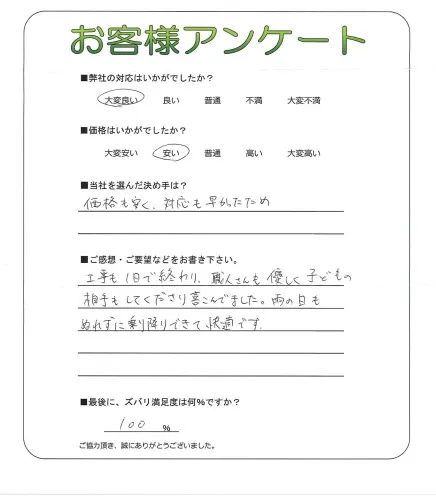 お客様アンケート
■弊社の対応はいかがでしたか？
大変良い 良い 普通 不満 大変不満
■価格はいかがでしたか？
大変安い 安い 普通 高い 大変高い
■当社を選んだ決め手は？
価格も安く、対応も早かったため
■ご感想・ご要望などをお書き下さい。
工事も1日で終わり、職人さんも優しく子どもの
相手もしてくださり喜こんでました。雨の日も
ぬれずに乗降りできて、快適です。
■最後に、ズバリ満足度は何%ですか？
100 %
ご協力頂き、誠にありがとうございました。